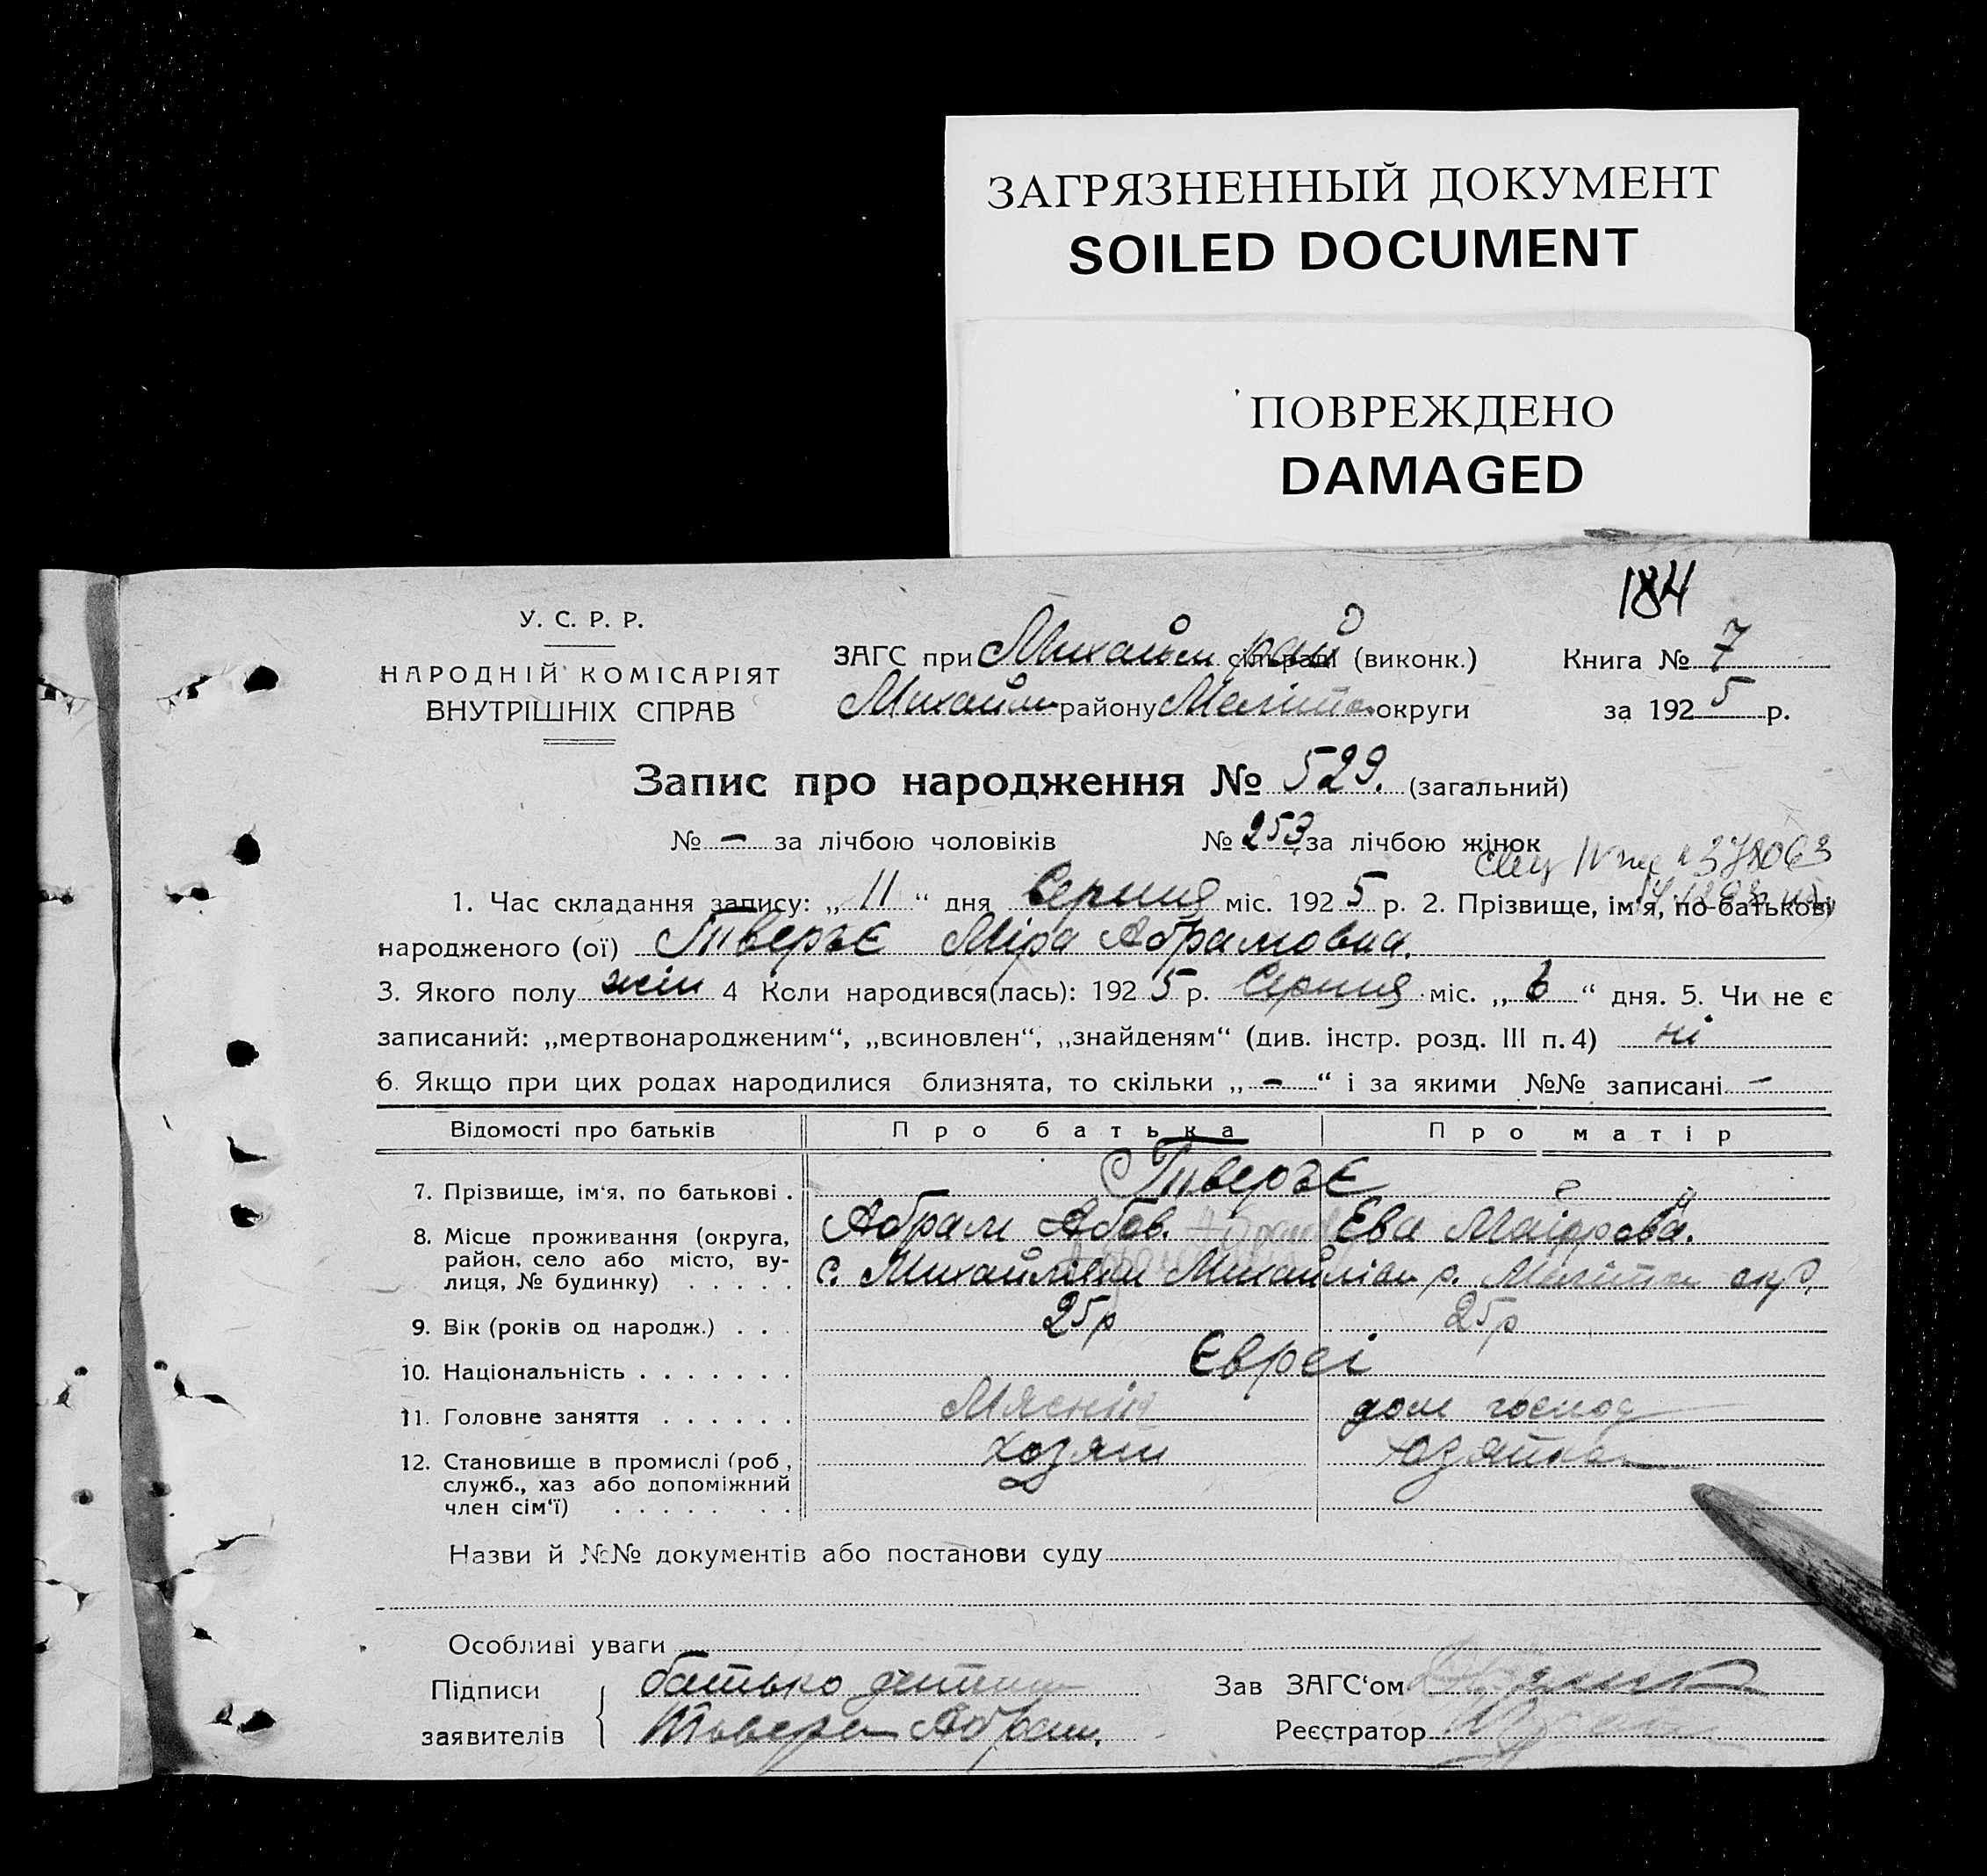 ЗАГРЯЗНЕННЫЙ ДОКУМЕНТ
SOILED DOCUMENT
ПОВРЕЖДЕНО
DAMAGED
184
У. С. Р. Р.
НАРОДНІЙ КОМІСАРІЯТ
ВНУТРІШНІХ СПРАВ
ЗАГС при Михайл рай сільраді (виконк.)
Михайл району Меліт округи
Книга № 7
за 1925 р.
Запис про народження № 529. (загальний)
№ - за лічбою чоловіків № 253 за лічбою жінок
1. Час складання запису: „ 11 “ дня Серпня міс. 1925 р. 2. Прізвище, ім‘я, по-батькові
народженого (ої) Міра Абрамовна.
3. Якого полу жін 4 Коли народився(лась): 1925 р. Серпня міс. „ 6 “ дня. 5. Чи не є
записаний: „мертвонародженим“, „всиновлен“, „знайденям“ (див. інстр. розд. III п. 4) ні
6. Якщо при цих родах народилися близнята, то скільки „ - “ і за якими №№ записані -
Відомості про батьків Про батька Про матір
7. Прізвище, ім‘я, по батькові .
Абрам Абов. Ева
8. Місце проживання (округа,
район, село або місто, ву-
лиця, № будинку) . . . . .
с. Михайлівка Михайлів р. Меліт окр.
9. Вік (років од народж.) . . 25 р 25 р
10. Національність . . . . . . . Євреї
11. Головне заняття . . . . . . дом господ
12. Становище в промислі (роб.,
служб., хаз або допоміжний
член сім‘ї) . . . . . . .
хозяїн хозяйка
Назви й №№ документів або постанови суду
Особливі уваги
Підписи
заявителів
батько дитини
Абрам.
Зав ЗАГС‘ом
Реєстратор